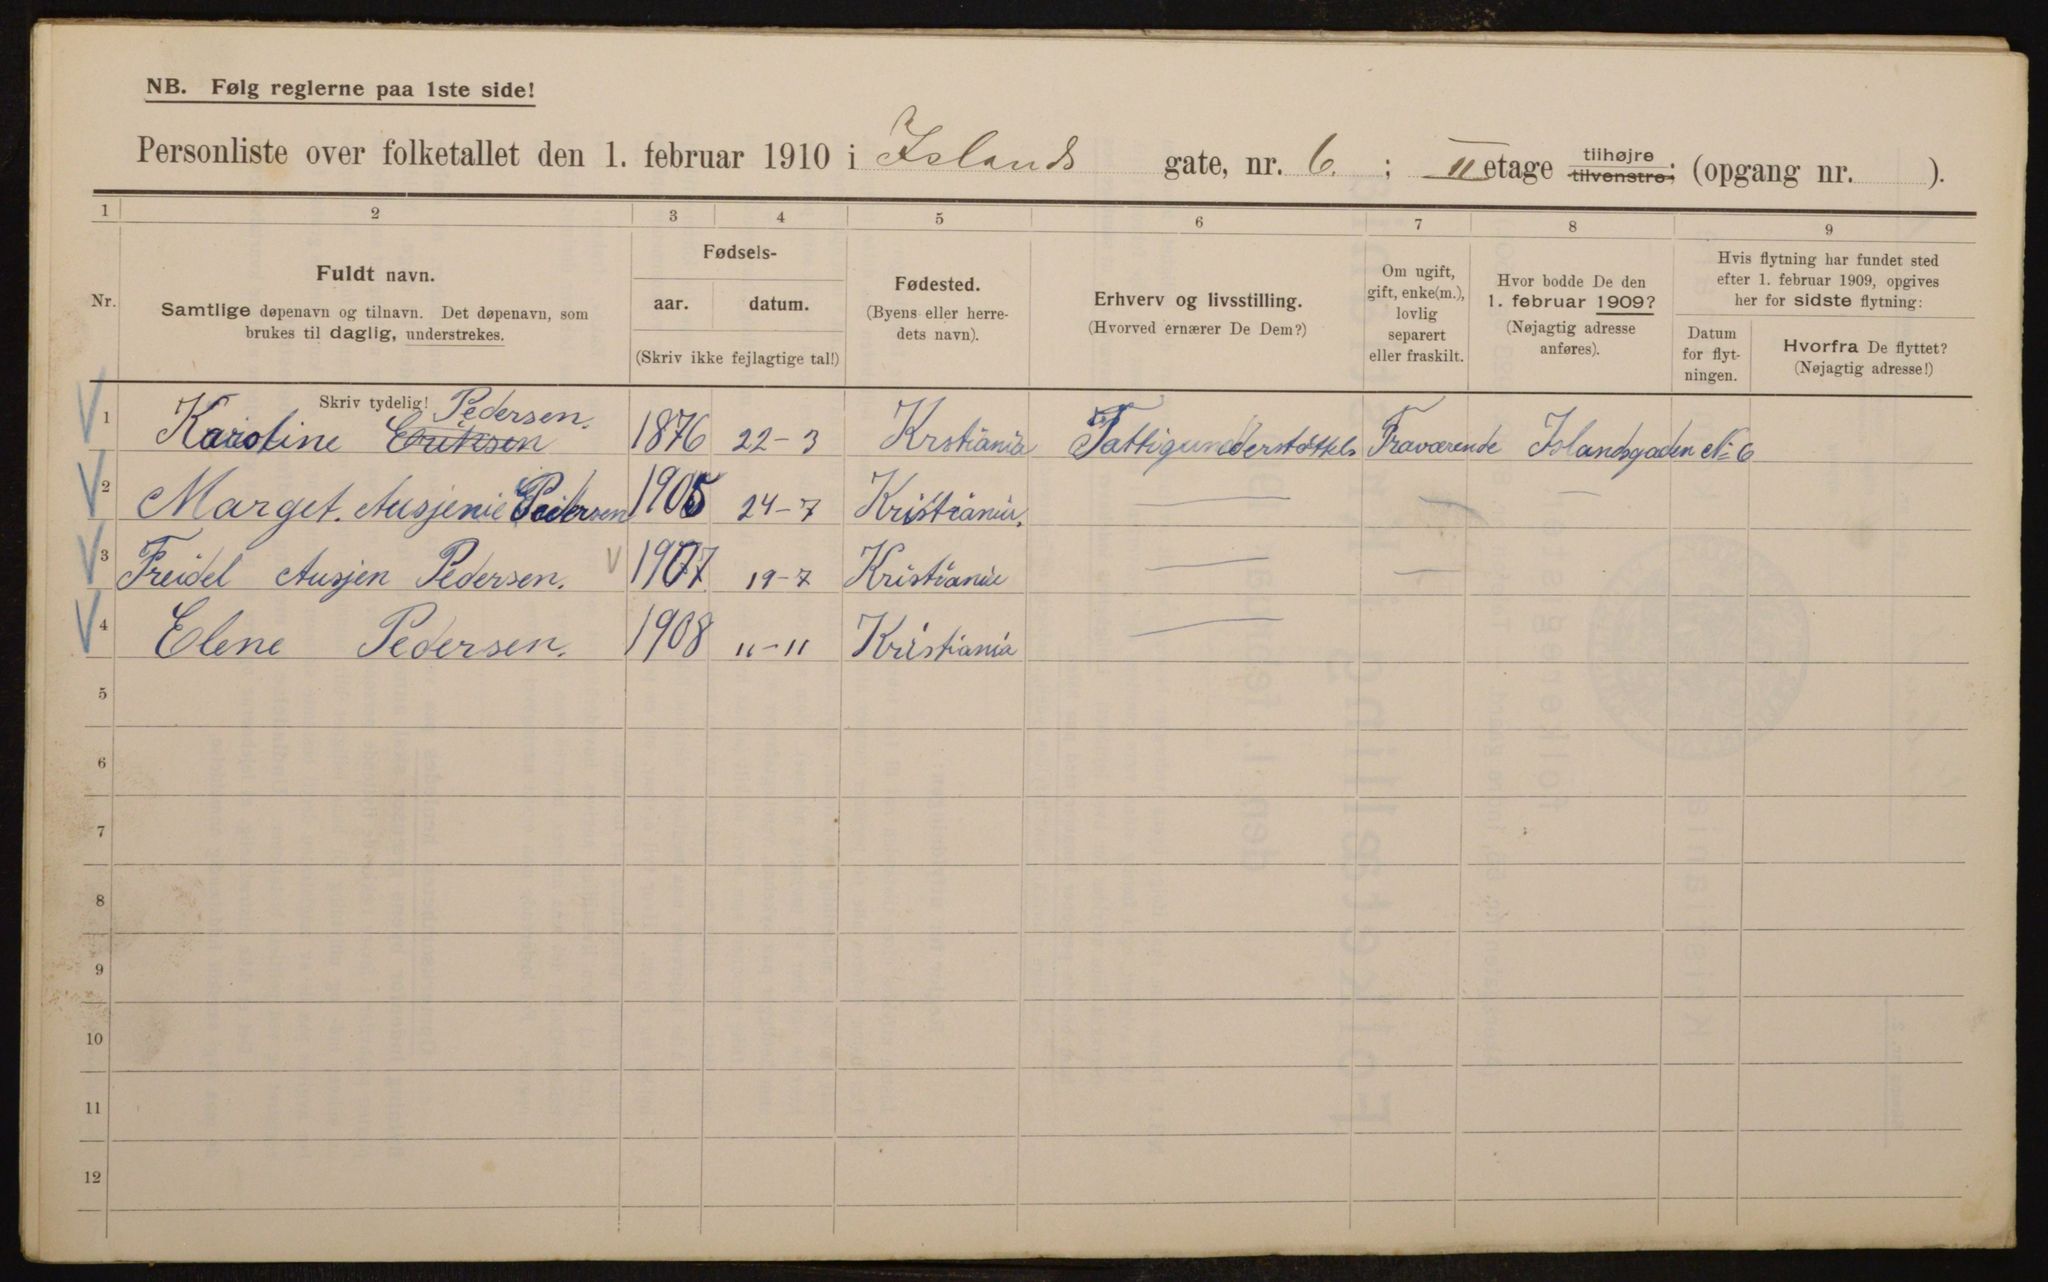 NB. Følg reglerne paa 1ste side!
Personliste over folketallet den 1. februar 1910 i Islands gate, nr. 6. ; II etage tilhøjre tilvenstre; (opgang nr. ).
1 2 3 4 5 6 7 8 9
Nr.
Fuldt navn.
Samtlige døpenavn og tilnavn. Det døpenavn, som
brukes til daglig, understrekes.
Fødsels-
aar. datum.
(Skriv ikke fejlagtige tal!)
Fødested.
(Byens eller herre-
dets navn).
Erhverv og livsstilling.
(Hvorved ernærer De Dem?)
Om ugift,
gift, enke(m.),
lovlig
separert
eller fraskilt.
Hvor bodde De den
1. februar 1909?
(Nøjagtig adresse
anføres).
Hvis flytning har fundet sted
efter 1. februar 1909, opgives
her for sidste flytning:
Datum
for flyt-
ningen.
Hvorfra De flyttet?
(Nøjagtig adresse!)
Skriv tydelig! Pedersen.
1 Karoline 1876 22-3 Krstiania Fattigunderstøttels Fraværende Islandsgaden No 6
2 Marget. Ausjenie Pedersen 1905 24-7 Kristiania. — — —
3 Freidel Ausjen Pedersen. 1907 19-7 Kristiania — —
4 Elene Pedersen. 1908 11-11 Kristiania —
5
6
7
8
9
10
11
12